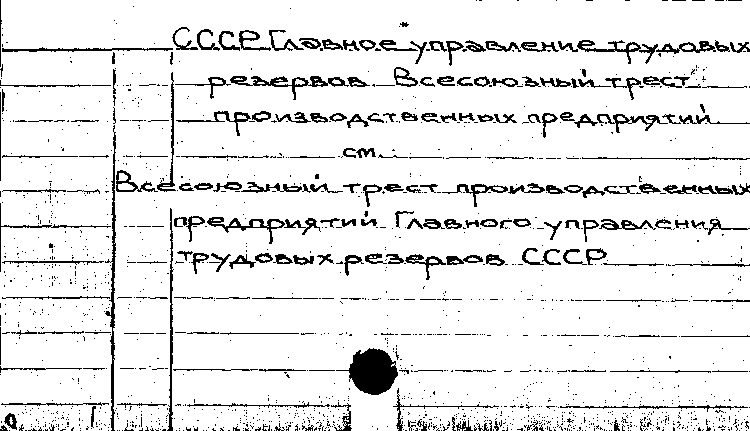 СССР. Главное управление трудовых
резервов. Всесоюзный трест
производственных предприятий
см.
Всесоюзный трест производственных
предприятий Главного управления
трудовых резервов СССР